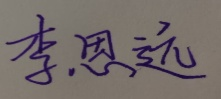 李思远